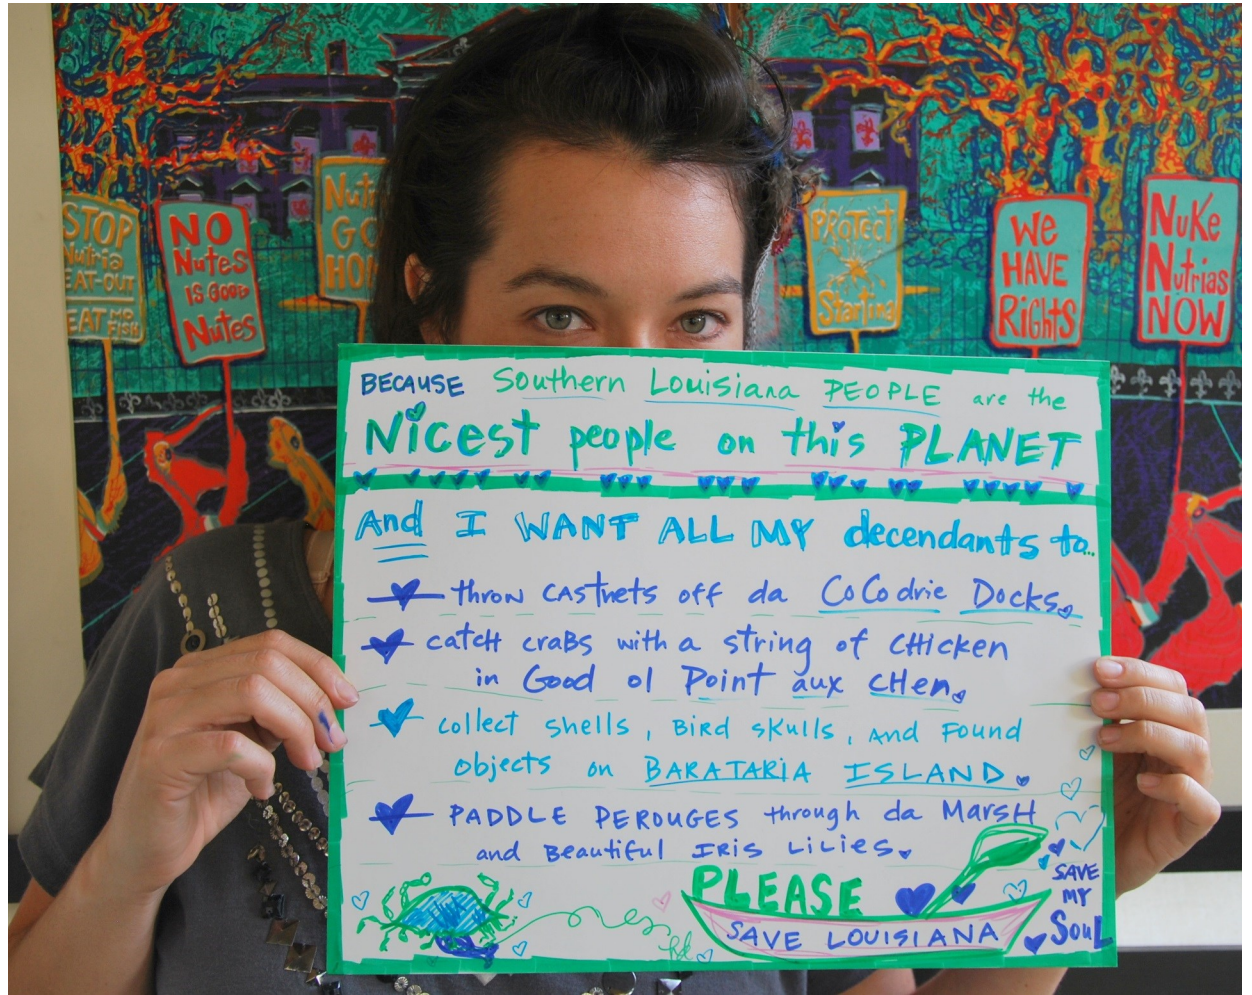 STOP
Nutria
EAT-OUT
EAT MO
FISH
NO
Nutes
IS GOOD
Nutes
Nutri
GO
HOM
PROTECT
Starting
We
HAVE
RigHTS
NuKe
Nutrias
NOW
BECAUSE Southern Louisiana PEOPLE are the
NiCesT people on this PLANET
And I WANT ALL MY decendants to..
throw CASTnets off da CoCodrie Docks.
CatCH CraBs with a string of CHicken
in Good ol Point aux CHen.
Collect shells, Bird sKulls, And Found
objects on BARATARIA ISLAND.
PADDLE PEROUGES through da MarsH
and Beautiful IRis LiLies.
PLEASE
SAVE LOUISIANA
SAVE
MY
SouL